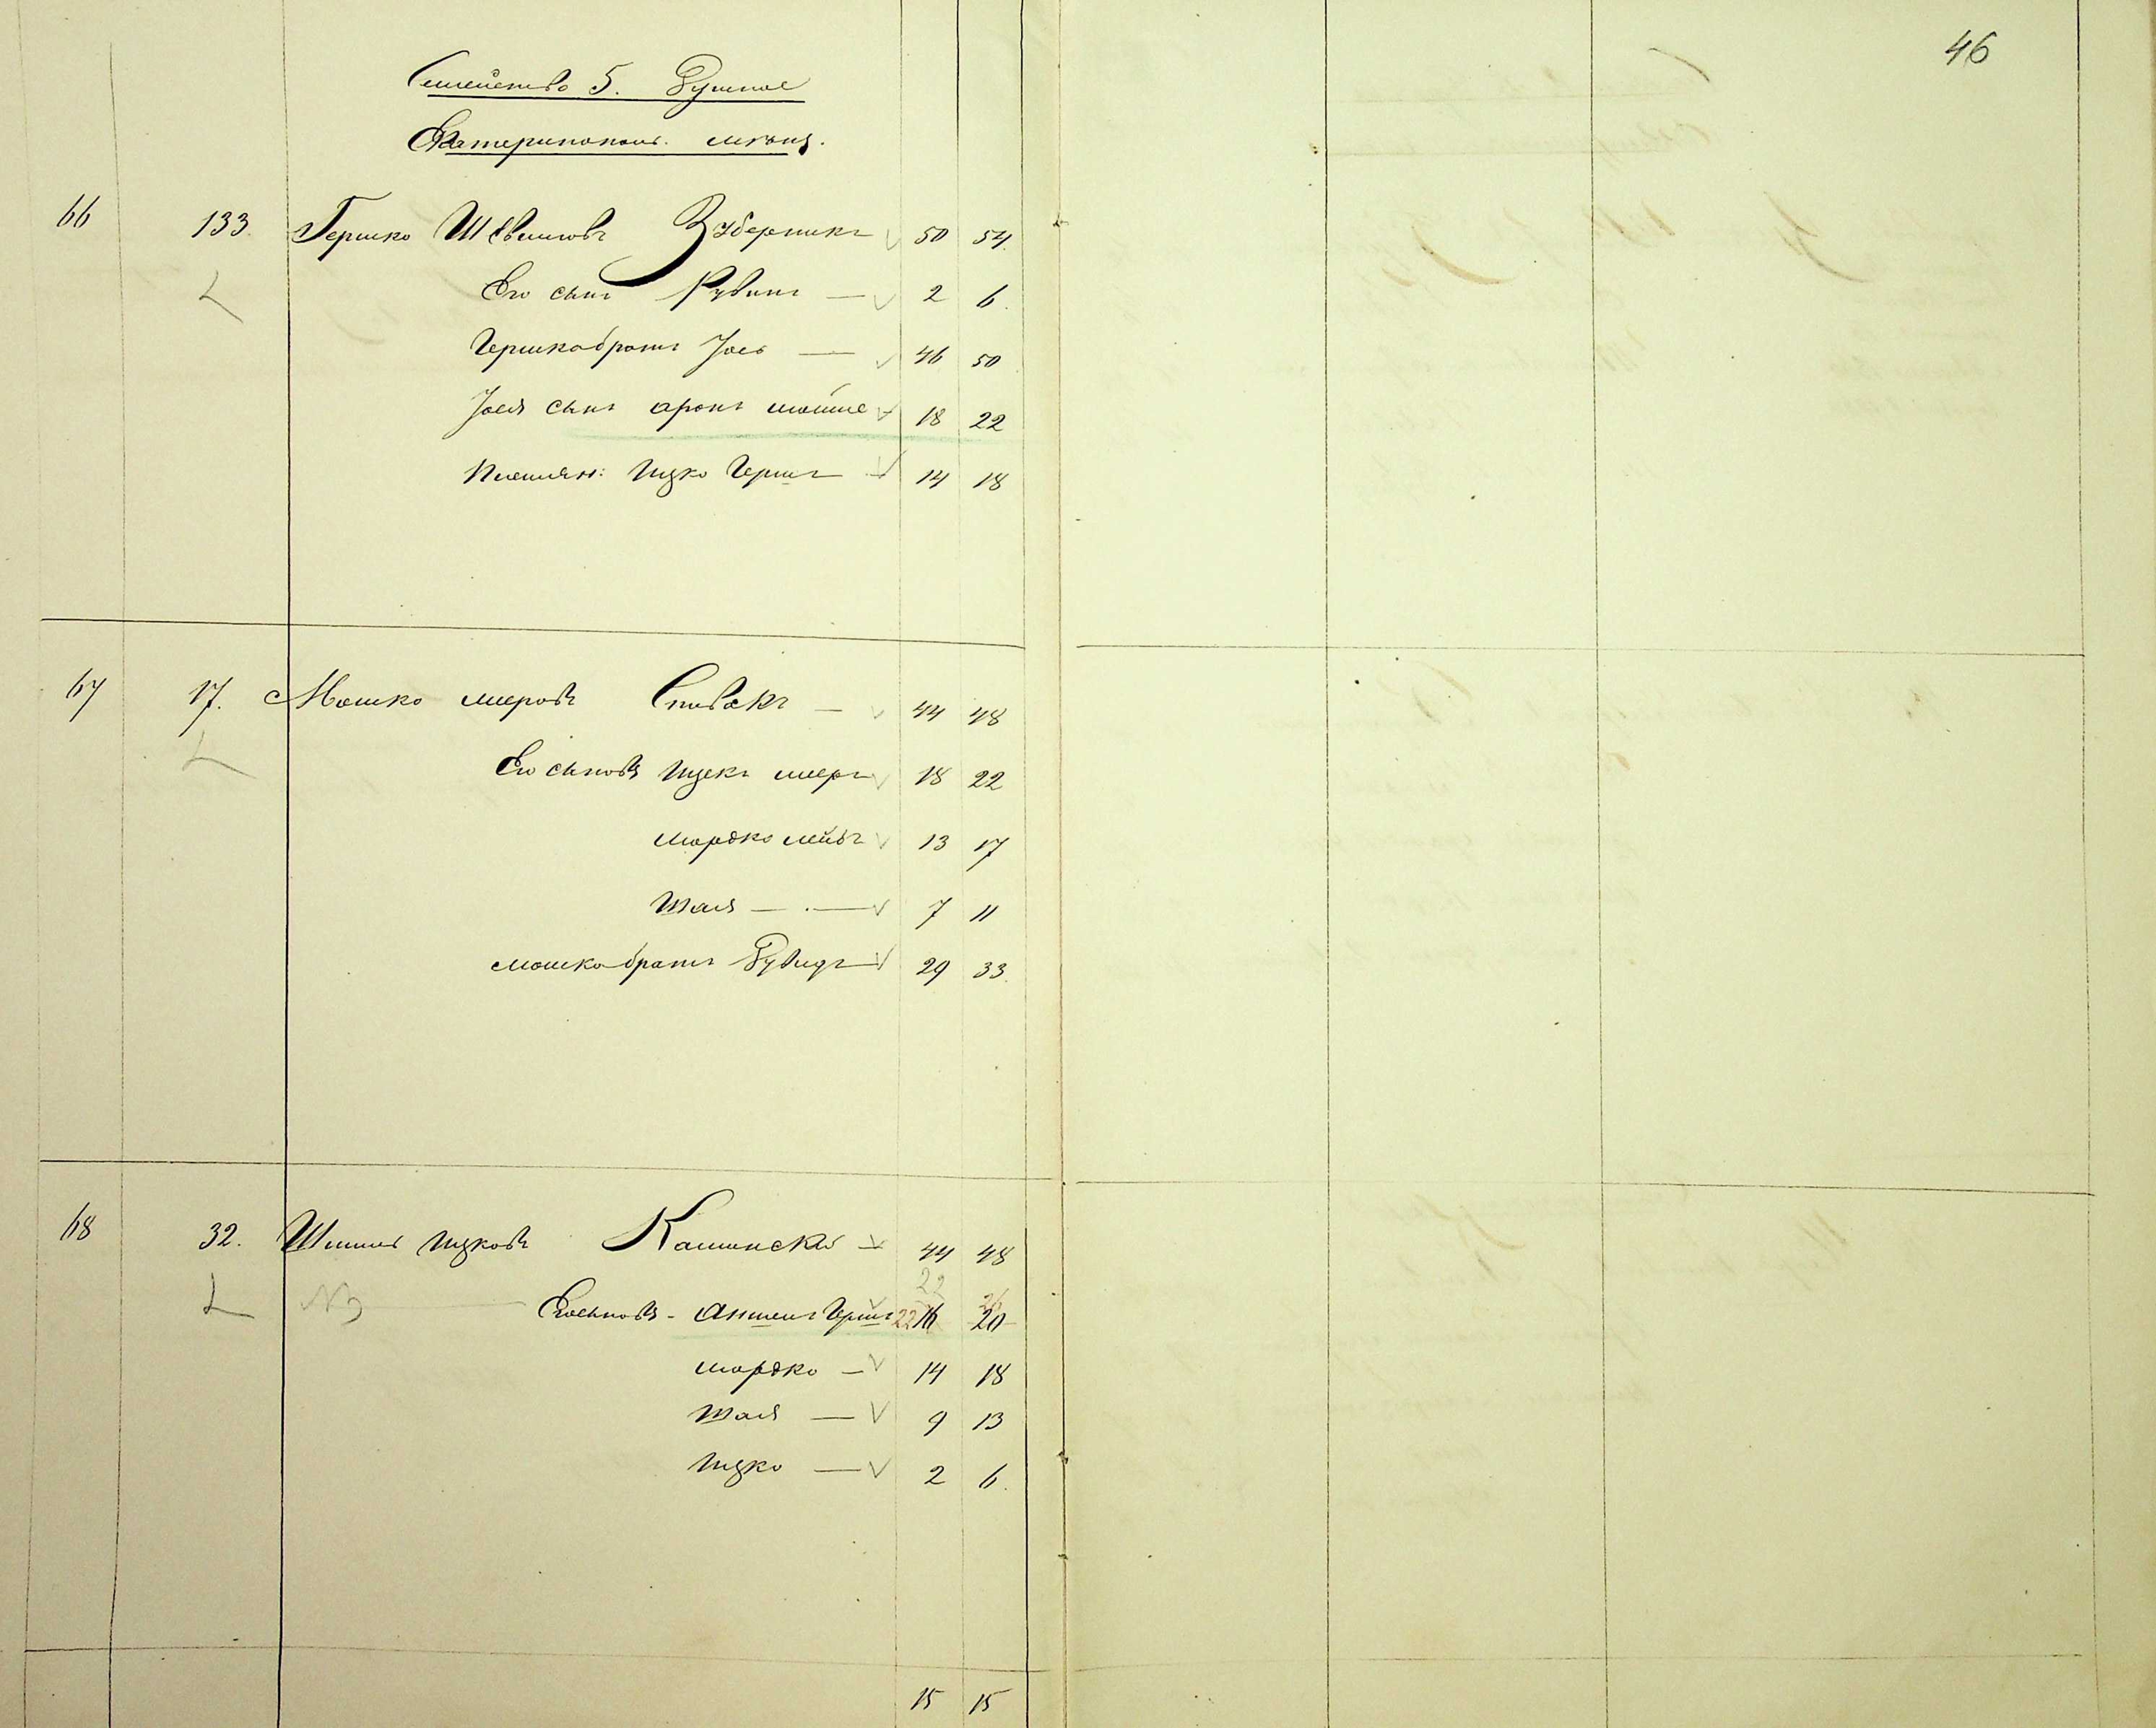 46
Семейство 5. Душное
Екатеринопол. мѣщ.
66 133 Гершко Шевшовъ Зуберникъ 50 54.
Его сынъ Рувинъ — 2 6.
Гершка братъ Іось — 46 50
Іося сынъ Аронъ Мойше 18 22
Племян: Ицко Гершъ 14 18
67 17. Мошко Меровъ Спивакъ — 44 48
Его сыновья Ицекъ Меръ 18 22
Мордко Лейбъ 13 17
Шая — 7 11
Мошка братъ 29 33.
68 32. Ицковъ Каминскій 44 48
22
NB Его сыновья - Аншель Гершъ 22 16 26 20
Мордко — 14 18
Шая — 9 13
Ицко — 2 6.
15 15